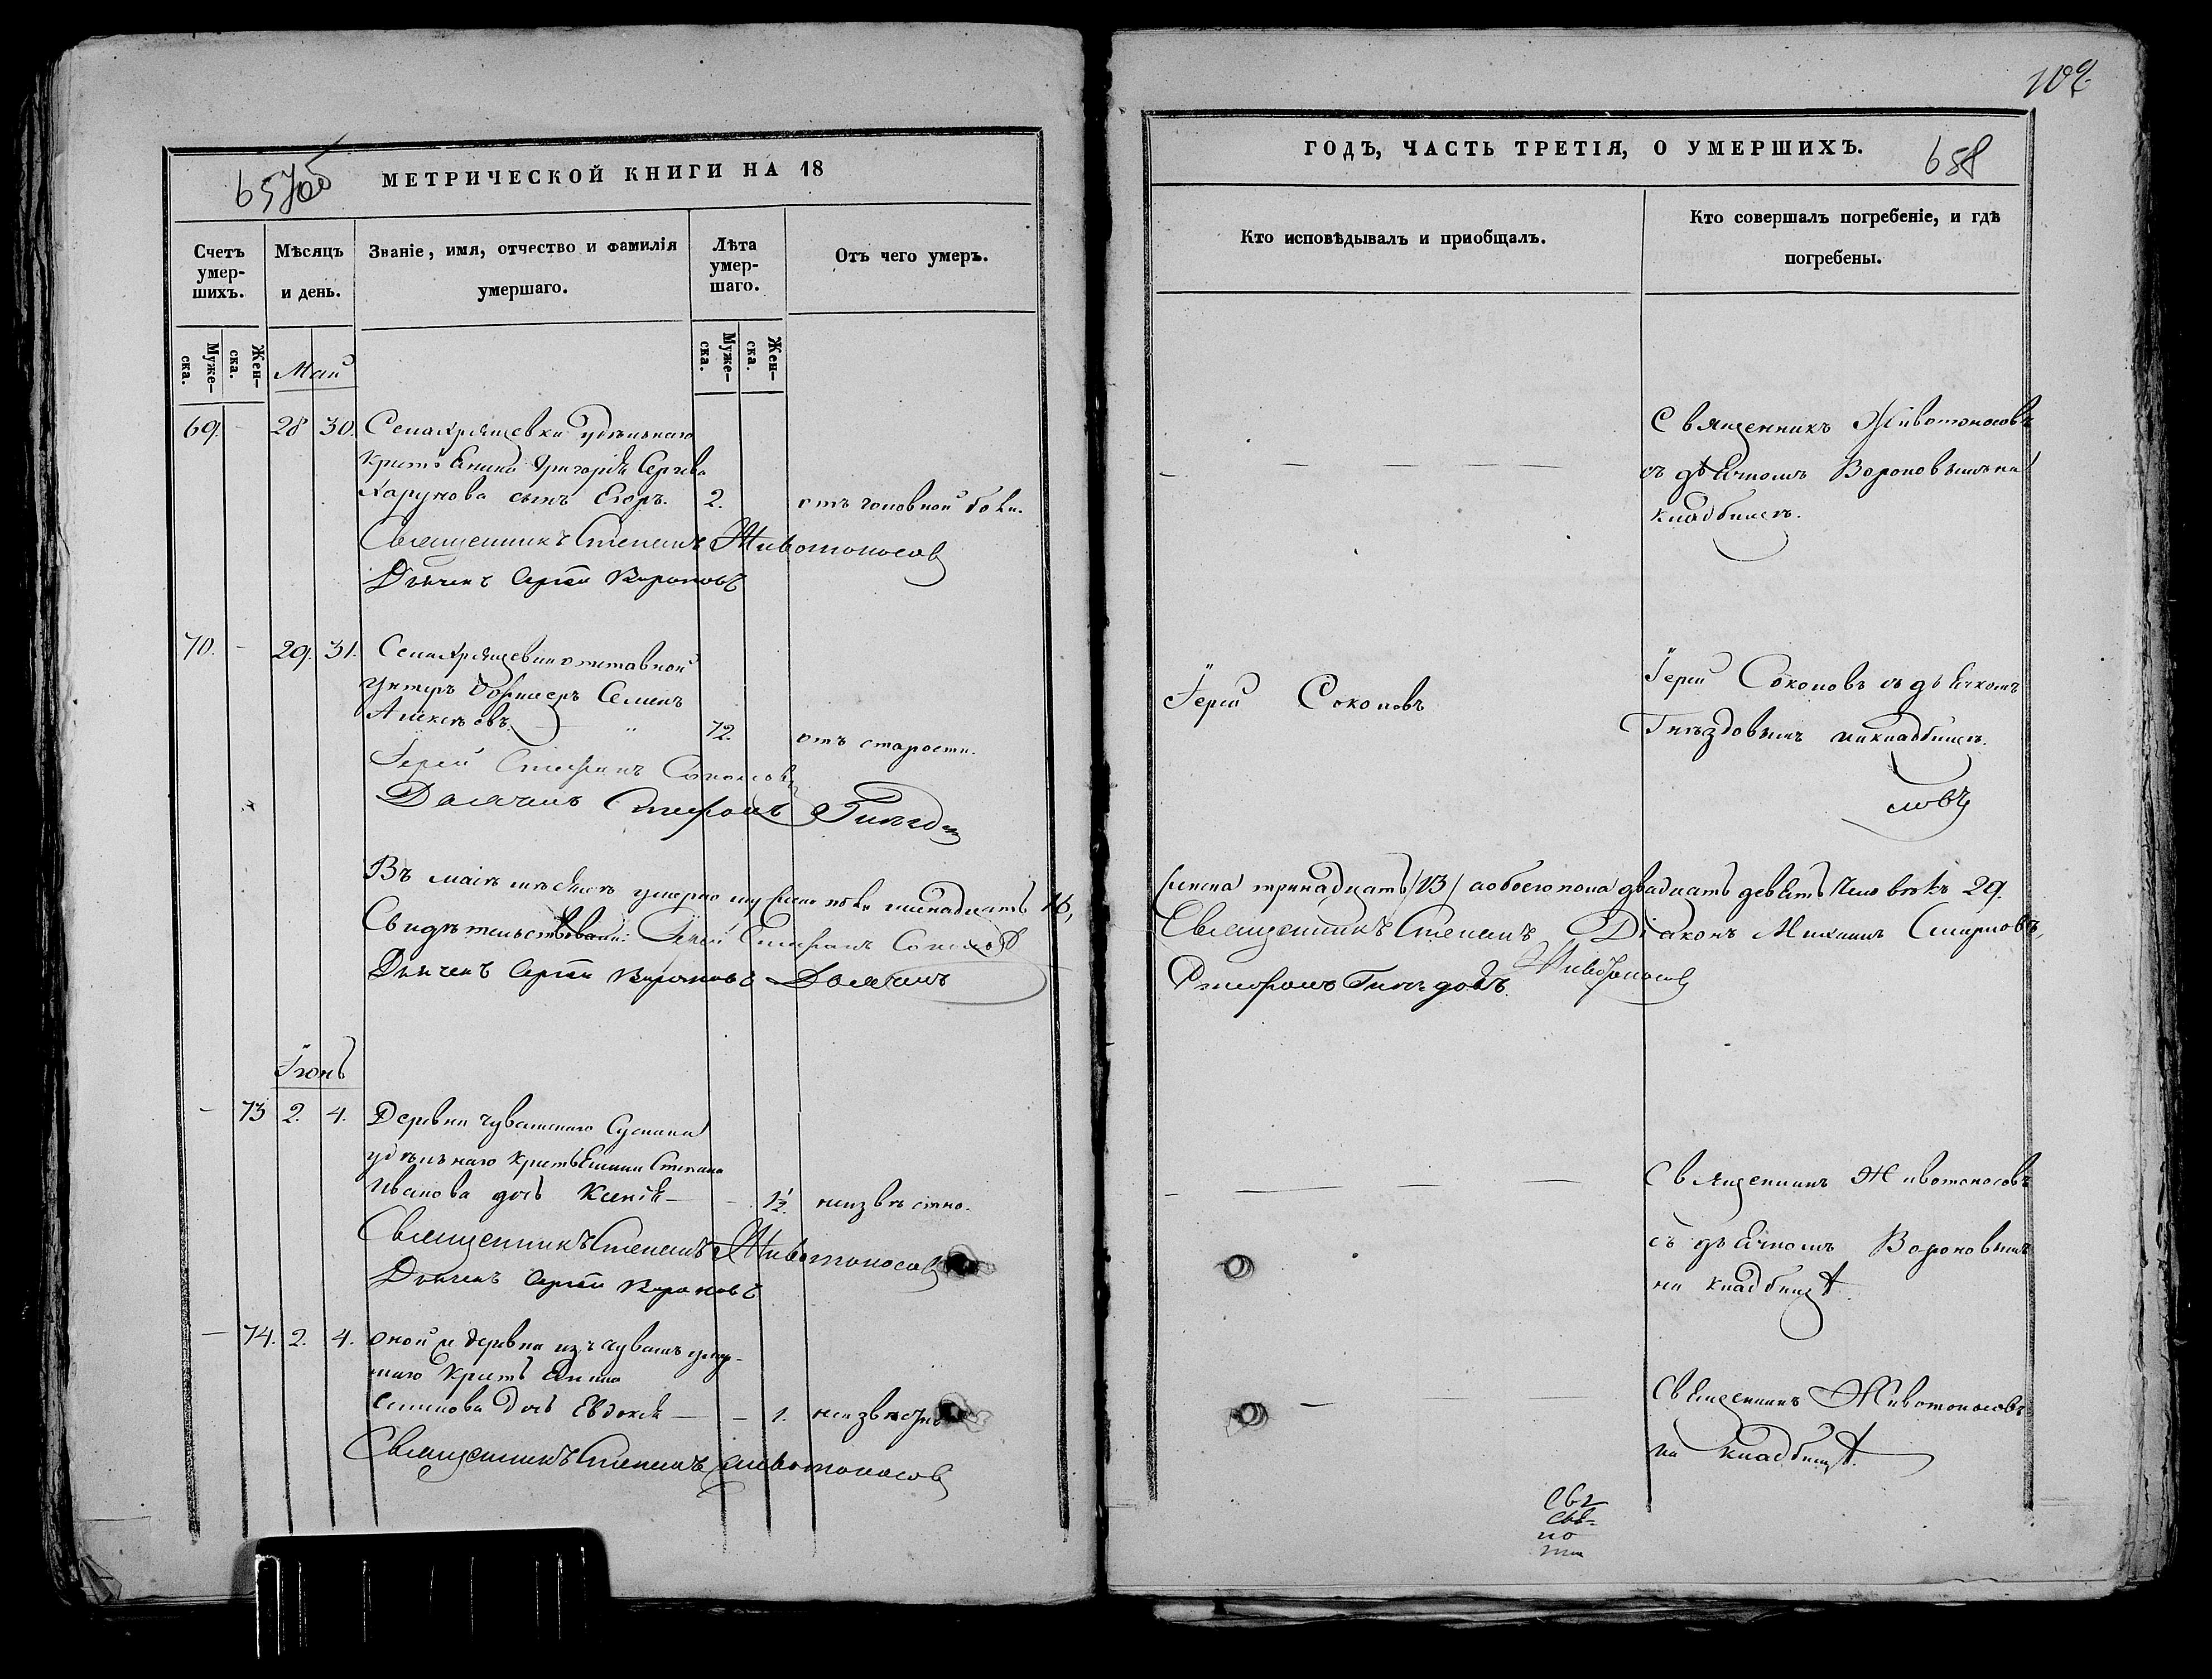 102
657об
МЕТРИЧЕСКОЙ КНИГИ НА 18
ГОДЪ, ЧАСТЬ ТРЕТІЯ, О УМЕРШИХЪ.
658
Счетъ умер-шихъ.
Мѣсяцъ и день.
Званіе, имя, отчество и фамилія умершаго.
Лѣта умер-шаго.
Отъ чего умеръ.
Кто исповѣдывалъ и приобщалъ.
Кто совершалъ погребеніе, и гдѣ погребены.
Муже-ска.
Жен-ска.
Муже-ска.
Жен-ска.
Май
69. - 28 30. Села Хрящевки удѣльнаго
крестьянина Григорія Сергѣева
Харунова сынъ Егоръ. 2. отъ головной боли.
Священникъ Животоносовъ
съ дьячкомъ Вороновымъ на
кладбищѣ.
Священникъ Степанъ Животоносов
Дьячекъ Сергей Вороновъ
70. - 29. 31. Села Хрящевки отставной
унтеръ офицеръ Семенъ
Алексѣевъ. 72. отъ старости.
Іерей Соколовъ
Іерей Соколовъ съ дьячкомъ
Гнѣздовымъ на кладбищѣ.
Іерей Стефанъ Соколовъ
Дьячекъ Стефанъ Гнѣздиловъ
Въ маіѣ мѣсяцѣ умерло мужеска пола шестнадцать 16,
женска тринадцать /13/ а обоего пола двадцать девять человѣкъ 29.
Свидѣтельствовали: Іерей Стефанъ Соколовъ
Священникъ Степанъ Животоносов
Діаконъ Михаилъ Смирновъ,
Дьячекъ Сергей Вороновъ Дьячекъ
Стефанъ Гнѣздовъ.
Іюнь
- 73 2. 4. Деревни чувашскаго Сускана
удѣльнаго крестьянина Степана
Иванова дочь Ксенія - - 1½. неизвѣстно.
Священникъ Животоносовъ
съ дьячкомъ Вороновымъ
на кладбищѣ.
Священникъ Степанъ Животоносов
Дьячекъ Сергей Вороновъ
- 74. 2. 4. оной же деревни изъ чувашъ
крестьянина
дочь Евдокія - - 1. неизвѣстно
Священникъ Животоносовъ
на кладбищѣ.
Священникъ Степанъ Животоносов